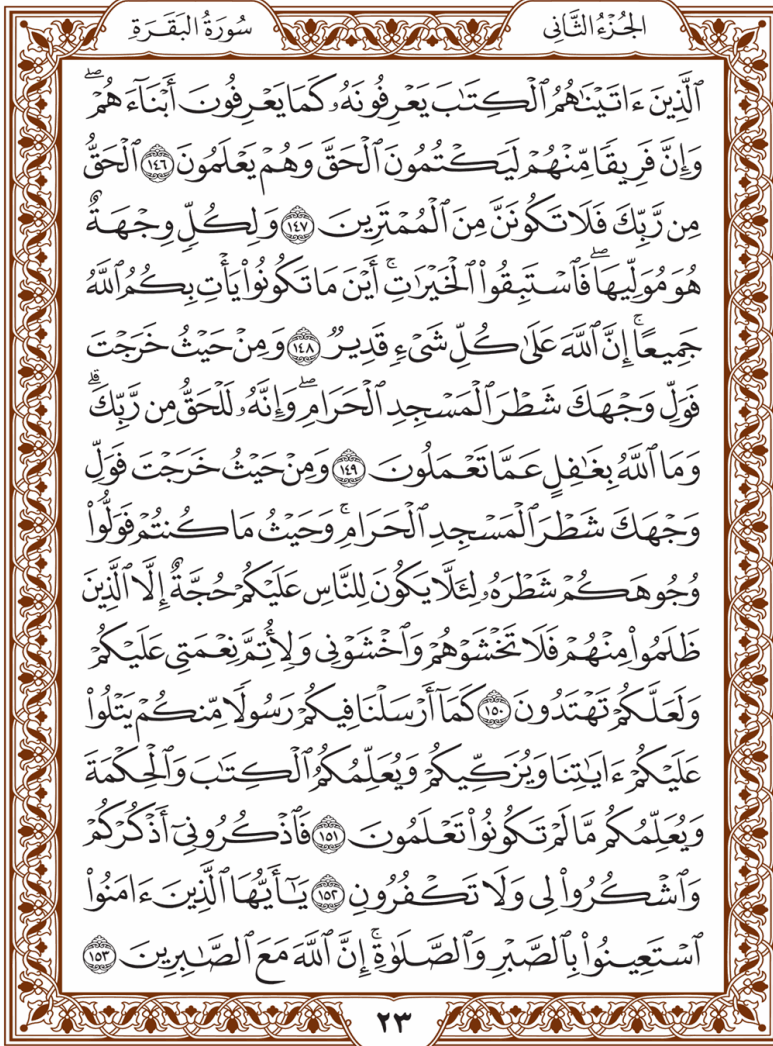 الجُزْءُ الثَّانِى
سُورَةُ البَقَرَةِ
ٱلَّذِينَ ءَاتَيْنَٰهُمُ ٱلْكِتَٰبَ يَعْرِفُونَهُۥ كَمَا يَعْرِفُونَ أَبْنَآءَهُمْۖ
وَإِنَّ فَرِيقًا مِّنْهُمْ لَيَكْتُمُونَ ٱلْحَقَّ وَهُمْ يَعْلَمُونَ ١٤٦ ٱلْحَقُّ
مِن رَّبِّكَ فَلَا تَكُونَنَّ مِنَ ٱلْمُمْتَرِينَ ١٤٧ وَلِكُلٍّ وِجْهَةٌ
هُوَ مُوَلِّيهَاۖ فَٱسْتَبِقُوا۟ ٱلْخَيْرَٰتِۚ أَيْنَ مَا تَكُونُوا۟ يَأْتِ بِكُمُ ٱللَّهُ
جَمِيعًاۚ إِنَّ ٱللَّهَ عَلَىٰ كُلِّ شَىْءٍ قَدِيرٌ ١٤٨ وَمِنْ حَيْثُ خَرَجْتَ
فَوَلِّ وَجْهَكَ شَطْرَ ٱلْمَسْجِدِ ٱلْحَرَامِۖ وَإِنَّهُۥ لَلْحَقُّ مِن رَّبِّكَۗ
وَمَا ٱللَّهُ بِغَٰفِلٍ عَمَّا تَعْمَلُونَ ١٤٩ وَمِنْ حَيْثُ خَرَجْتَ فَوَلِّ
وَجْهَكَ شَطْرَ ٱلْمَسْجِدِ ٱلْحَرَامِۚ وَحَيْثُ مَا كُنتُمْ فَوَلُّوا۟
وُجُوهَكُمْ شَطْرَهُۥ لِئَلَّا يَكُونَ لِلنَّاسِ عَلَيْكُمْ حُجَّةٌ إِلَّا ٱلَّذِينَ
ظَلَمُوا۟ مِنْهُمْ فَلَا تَخْشَوْهُمْ وَٱخْشَوْنِى وَلِأُتِمَّ نِعْمَتِى عَلَيْكُمْ
وَلَعَلَّكُمْ تَهْتَدُونَ ١٥٠ كَمَآ أَرْسَلْنَا فِيكُمْ رَسُولًا مِّنكُمْ يَتْلُوا۟
عَلَيْكُمْ ءَايَٰتِنَا وَيُزَكِّيكُمْ وَيُعَلِّمُكُمُ ٱلْكِتَٰبَ وَٱلْحِكْمَةَ
وَيُعَلِّمُكُم مَّا لَمْ تَكُونُوا۟ تَعْلَمُونَ ١٥١ فَٱذْكُرُونِىٓ أَذْكُرْكُمْ
وَٱشْكُرُوا۟ لِى وَلَا تَكْفُرُونِ ١٥٢ يَٰٓأَيُّهَا ٱلَّذِينَ ءَامَنُوا۟
ٱسْتَعِينُوا۟ بِٱلصَّبْرِ وَٱلصَّلَوٰةِۚ إِنَّ ٱللَّهَ مَعَ ٱلصَّٰبِرِينَ ١٥٣
٢٣